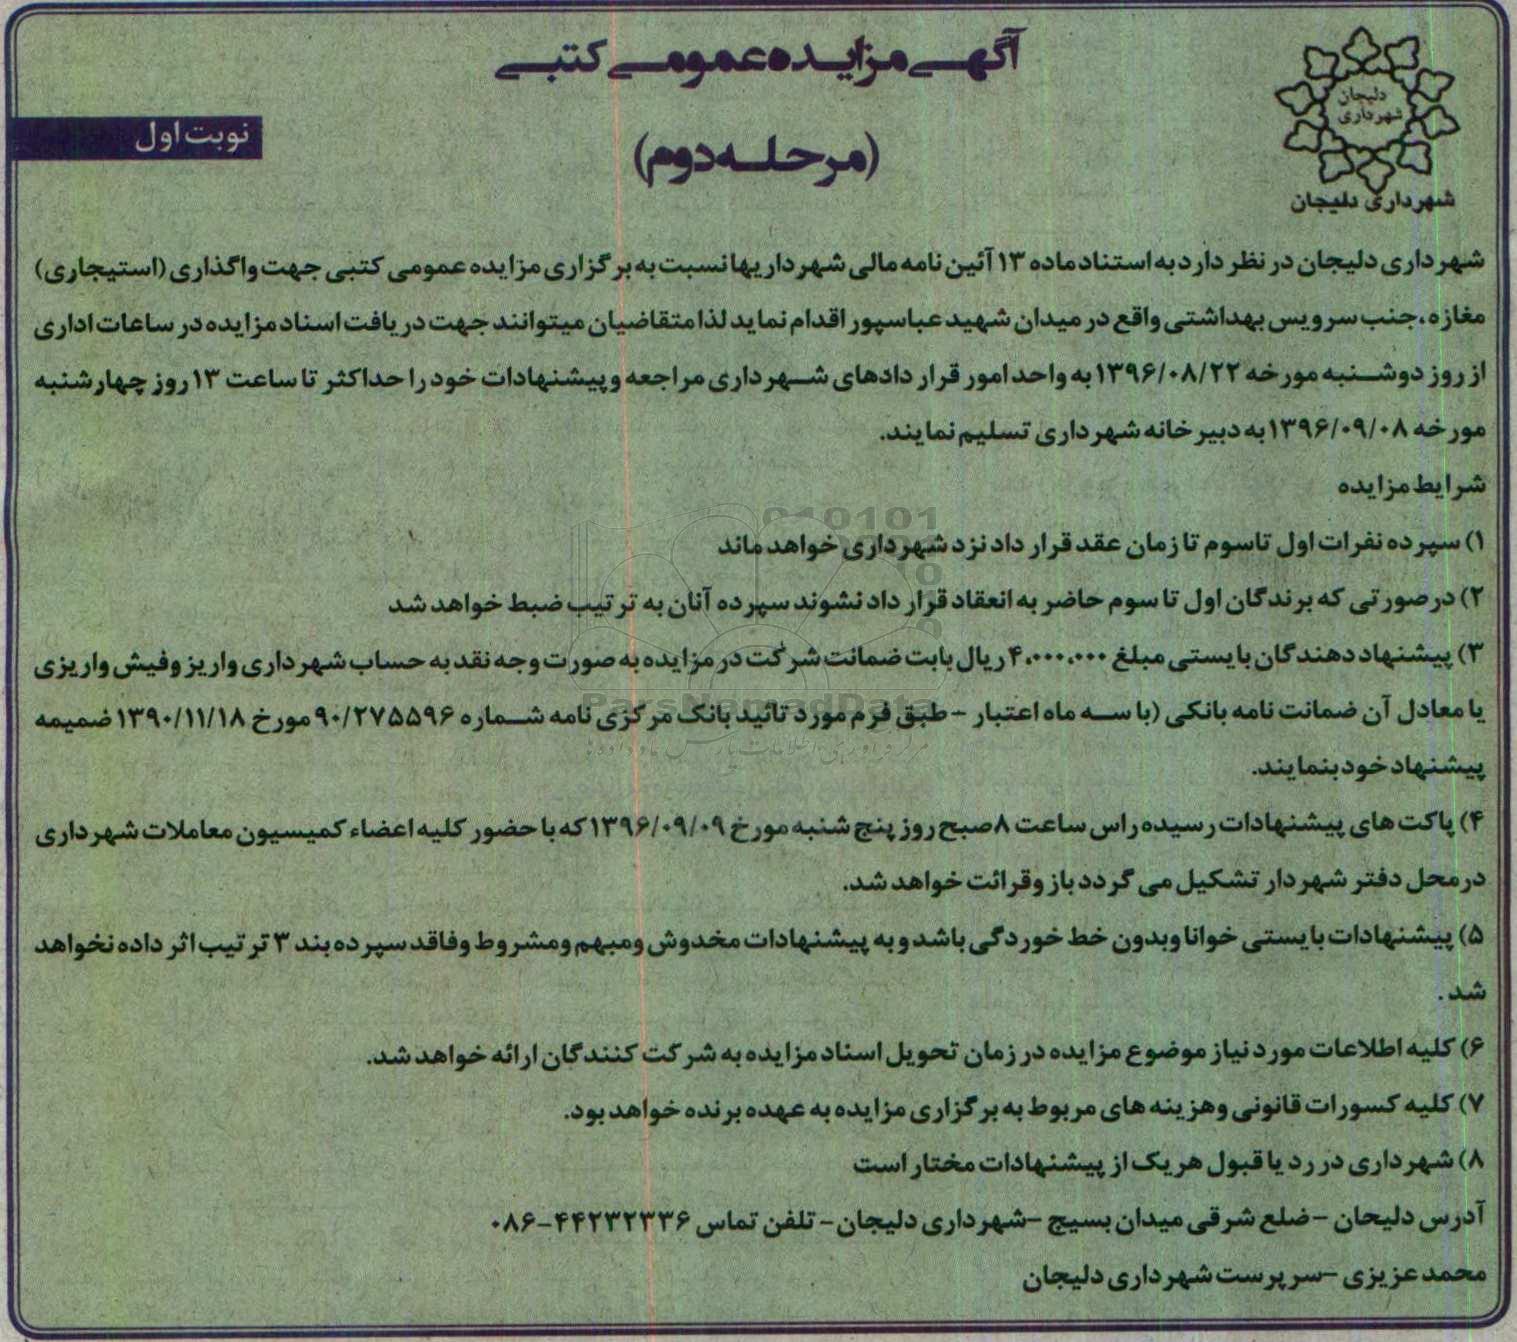 آگهی مزایده عمومی کتبی
(مرحله دوم)
نوبت اول
دلیجان
شهرداری
شهرداری دلیجان
شهرداری دلیجان در نظر دارد به استناد ماده ۱۳ آئین نامه مالی شهرداریها نسبت به برگزاری مزایده عمومی کتبی جهت واگذاری (استیجاری)
مغازه،جنب سرویس بهداشتی واقع در میدان شهید عباسپور اقدام نماید لذا متقاضیان میتوانند جهت دریافت اسناد مزایده در ساعات اداری
از روز دوشنبه مورخه ۱۳۹۶/۰۸/۲۲ به واحد امور قرار دادهای شهرداری مراجعه و پیشنهادات خود را حداکثر تا ساعت ۱۳ روز چهارشنبه
مورخه ۱۳۹۶/۰۹/۰۸ به دبیرخانه شهرداری تسلیم نمایند.
شرایط مزایده
۱) سپرده نفرات اول تاسوم تا زمان عقد قرار داد نزد شهرداری خواهد ماند
۲) درصورتی که برندگان اول تا سوم حاضر به انعقاد قرار داد نشوند سپرده آنان به ترتیب ضبط خواهد شد
۳) پیشنهاد دهندگان بایستی مبلغ ۴،۰۰۰،۰۰۰ ریال بابت ضمانت شرکت در مزایده به صورت وجه نقد به حساب شهرداری واریز وفیش واریزی
یا معادل آن ضمانت نامه بانکی (با سه ماه اعتبار – طبق فرم مورد تائید بانک مرکزی نامه شماره ۹۰/۲۷۵۵۹۶ مورخ ۱۳۹۰/۱۱/۱۸ ضمیمه
پیشنهاد خود بنمایند.
۴) پاکت های پیشنهادات رسیده راس ساعت ۸ صبح روز پنج شنبه مورخ ۱۳۹۶/۰۹/۰۹ که با حضور کلیه اعضاء کمیسیون معاملات شهرداری
درمحل دفتر شهردار تشکیل می گردد باز وقرائت خواهد شد.
۵) پیشنهادات بایستی خوانا وبدون خط خوردگی باشد و به پیشنهادات مخدوش ومبهم ومشروط وفاقد سپرده بند ۳ ترتیب اثر داده نخواهد
شد.
۶) کلیه اطلاعات مورد نیاز موضوع مزایده در زمان تحویل اسناد مزایده به شرکت کنندگان ارائه خواهد شد.
۷) کلیه کسورات قانونی وهزینه های مربوط به برگزاری مزایده به عهده برنده خواهد بود.
۸) شهرداری در رد یا قبول هریک از پیشنهادات مختار است
آدرس دلیحان – ضلع شرقی میدان بسیج – شهرداری دلیجان – تلفن تماس ۴۴۲۳۲۳۳۶-۰۸۶
محمد عزیزی – سرپرست شهرداری دلیجان
ParsNamadData